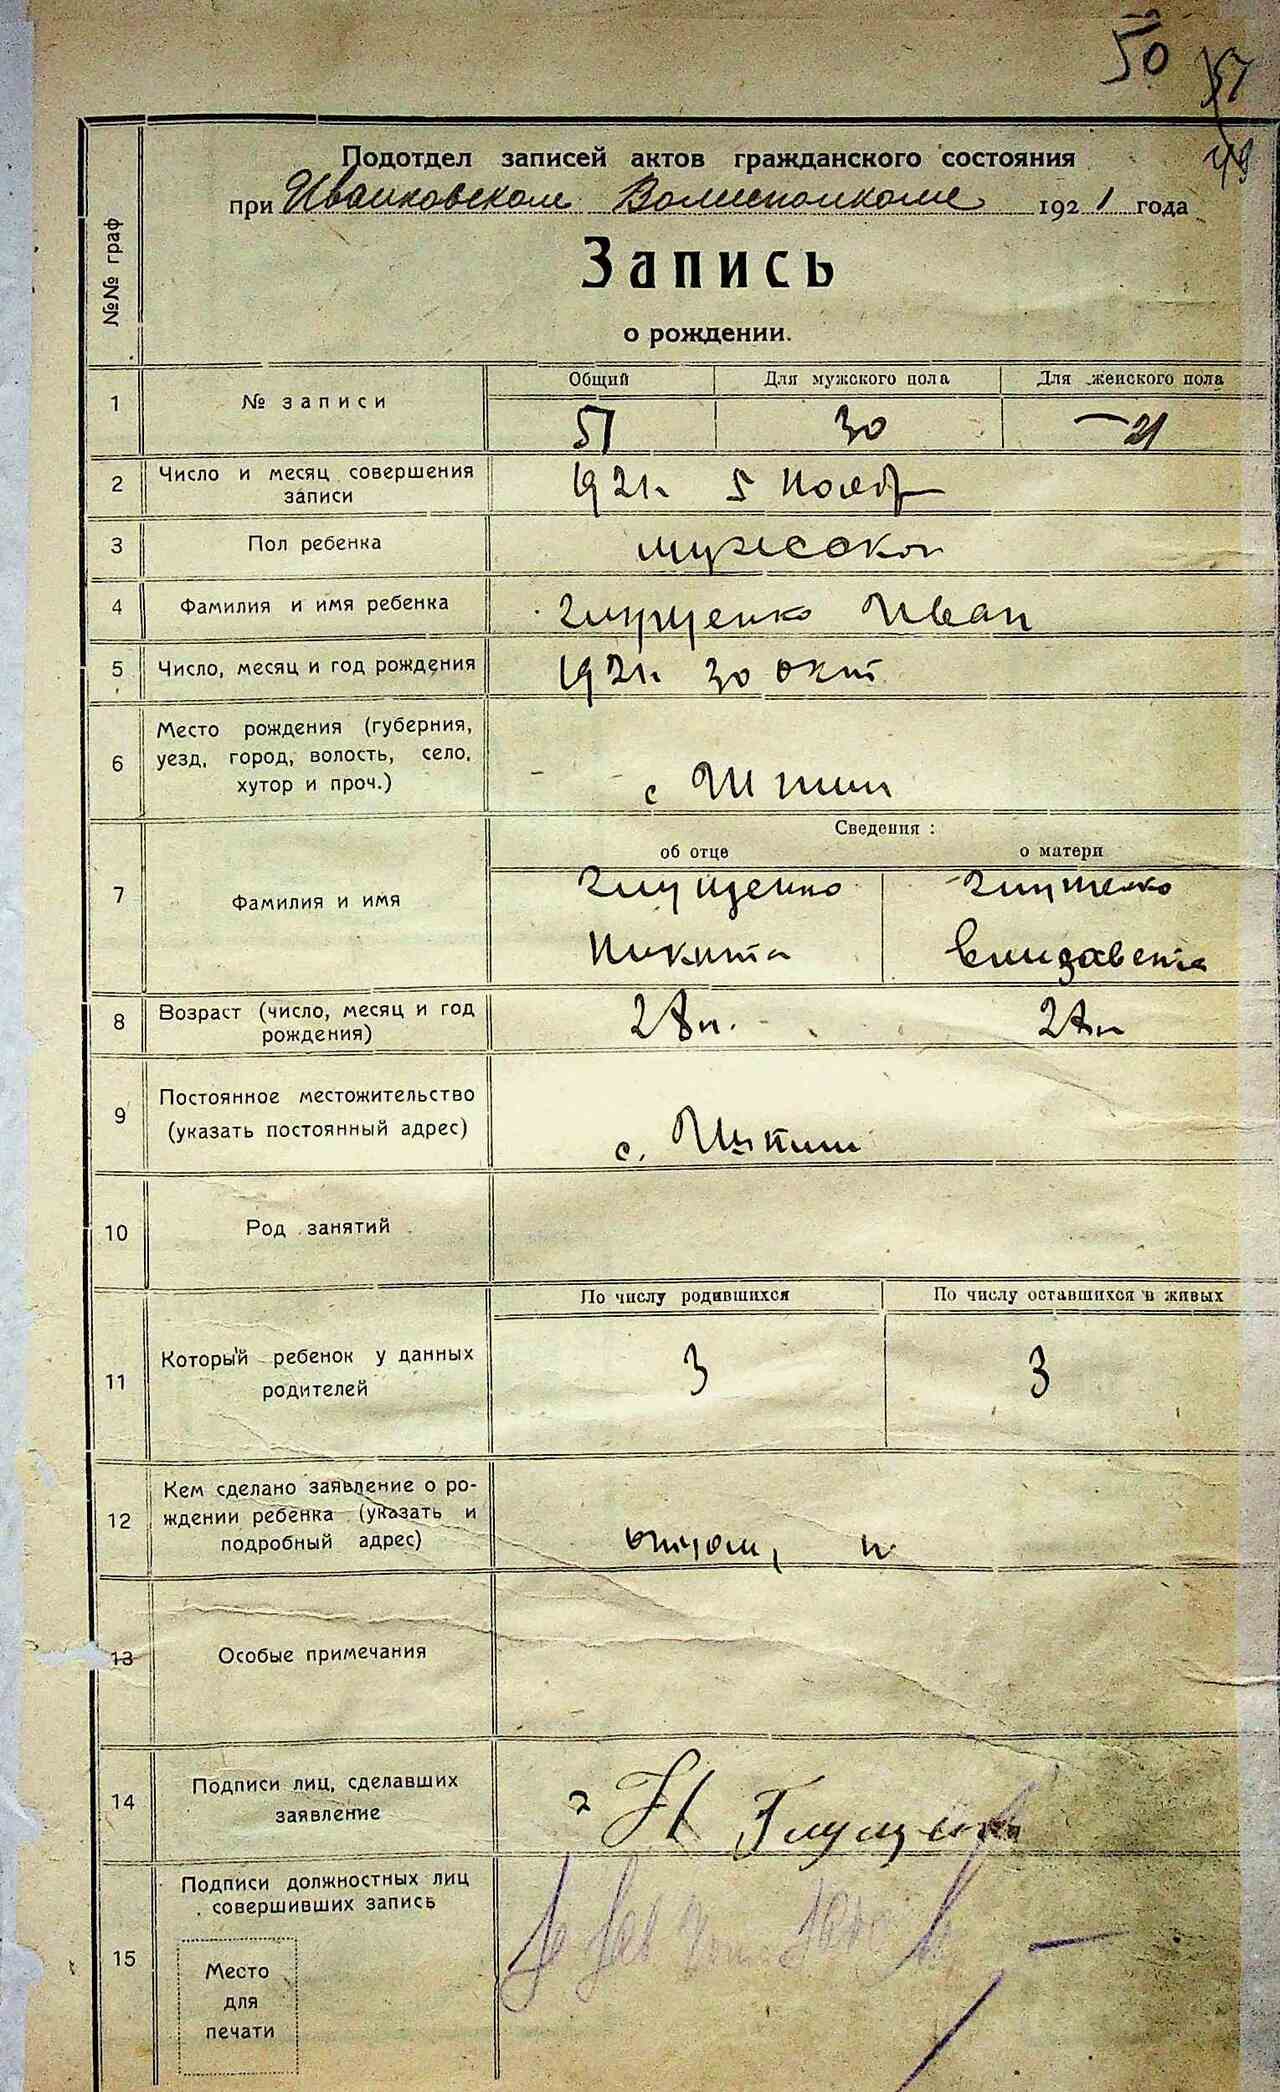 50 51
49
Подотдел записей актов гражданского состояния
при Иванковском Волисполкоме 1921 года
Запись
о рождении.
№№ граф
1 № записи Общий Для мужского пола Для женского пола
51 30 — 21
2 Число и месяц совершения
записи
1921 г. 5 Нояб
3 Пол ребенка мужеской
4 Фамилия и имя ребенка Глущенко Иван
5 Число, месяц и год рождения 1921 г. 30 окт
6 Место рождения (губерния,
уезд, город, волость, село,
хутор и проч.)
с
Сведения :
об отце о матери
7 Фамилия и имя
Глущенко Глущенко
Никита Елизавета
8 Возраст (число, месяц и год
рождения)
28 л. 28 л
9 Постоянное местожительство
(указать постоянный адрес)
с.
10 Род занятий
11 Который ребенок у данных
родителей
По числу родившихся По числу оставшихся в живых
3 3
12 Кем сделано заявление о ро-
ждении ребенка (указать и
подробный адрес)
отцом,
13 Особые примечания
14 Подписи лиц, сделавших
заявление
Н Глущенко
15 Подписи должностных лиц
совершивших запись
Место
для
печати